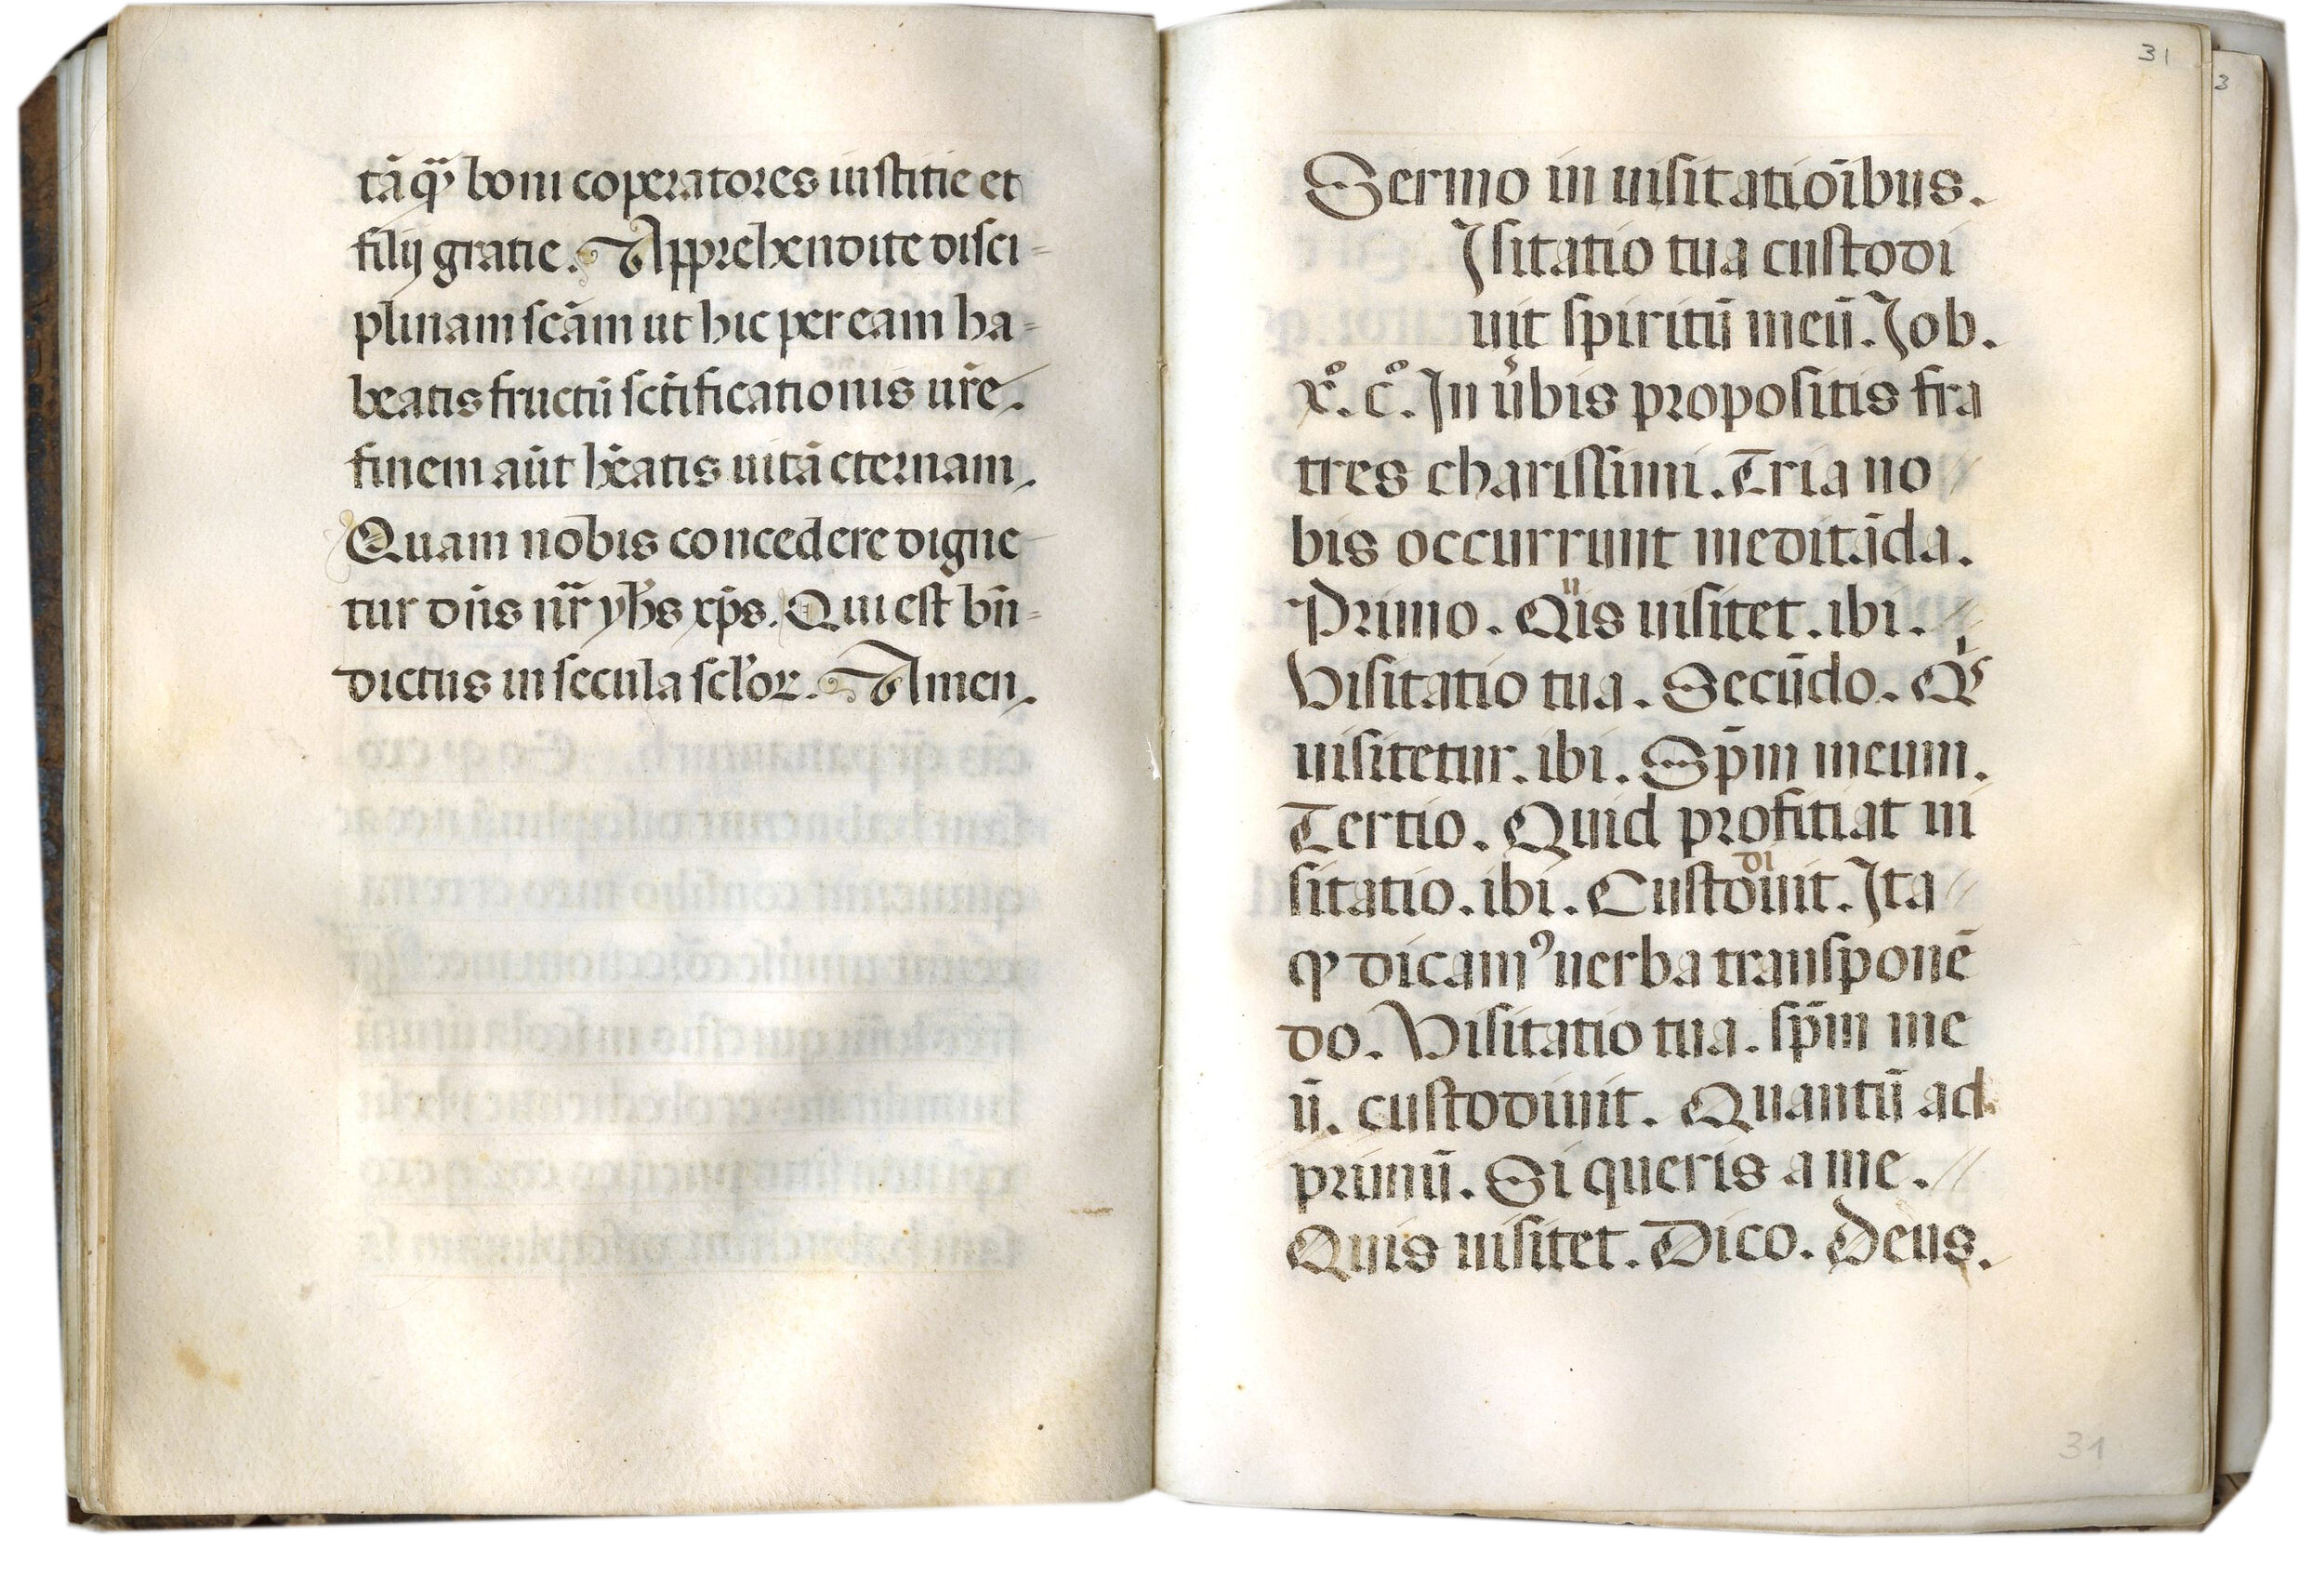 tāq̄ꝫ boni coperatores iustitie et
filij gratie. Apprehendite disci=
plinam scām ut hic per eam ha=
beatis fructū sctificationis ur̄e.
finem aūt hēatis uitā eternam.
Quam nobis concedere digne
tur dn̄s nr̄ yħs xp̄s. Qui est bn̄=
dictus in secula scl'oꝝ. Amen.
31
Sermo in uisitatioībus.
Isitatio tua custodi
uit spiritū meū. Job.
x°. c°. In ūbis propositis fra
tres charissimi. Tria no
bis occurrunt meditāda.
Primo. Quis uisitet. ibi.
Visitatio tua. Secūdo. Qͥs
uisitetur. ibi. Sp̄m meum.
Tertio. Quid profitiat ui
sitatio. ibi. Custodiuit. Ita
qꝫ dicamꝰ uerba transponē
do. Visitatio tua. sp̄m me
ū. custodiuit. Quantū ad
primū. Si queris a me.
Quis uisitet. Dico. Deus.
31